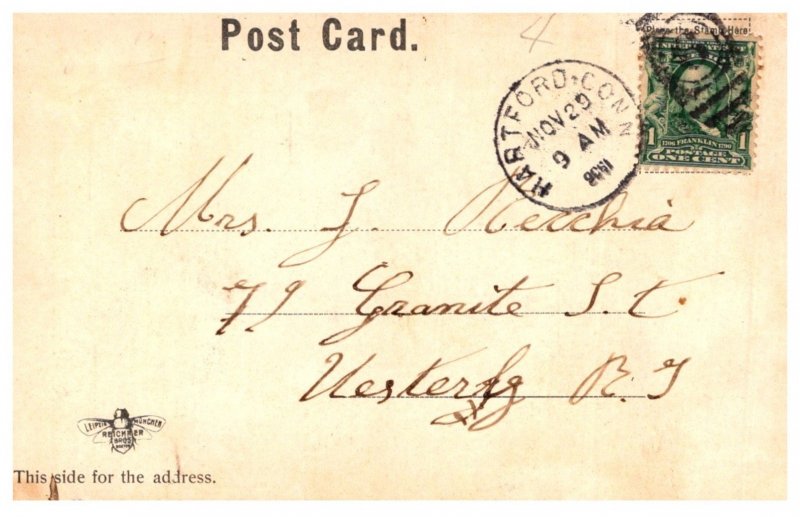 Post Card.
4
Place the Stamp Here
HARTFORD, CONN.
NOV 29
9 AM
1906
1 1
1706 FRANKLIN 1790
POSTAGE
ONE CENT
Mrs. J. Recchia
79 Granite S.t
Westerly R. I
LEIPZIG MÜNCHEN
REICHNER
BROS.
BOSTON
This side for the address.